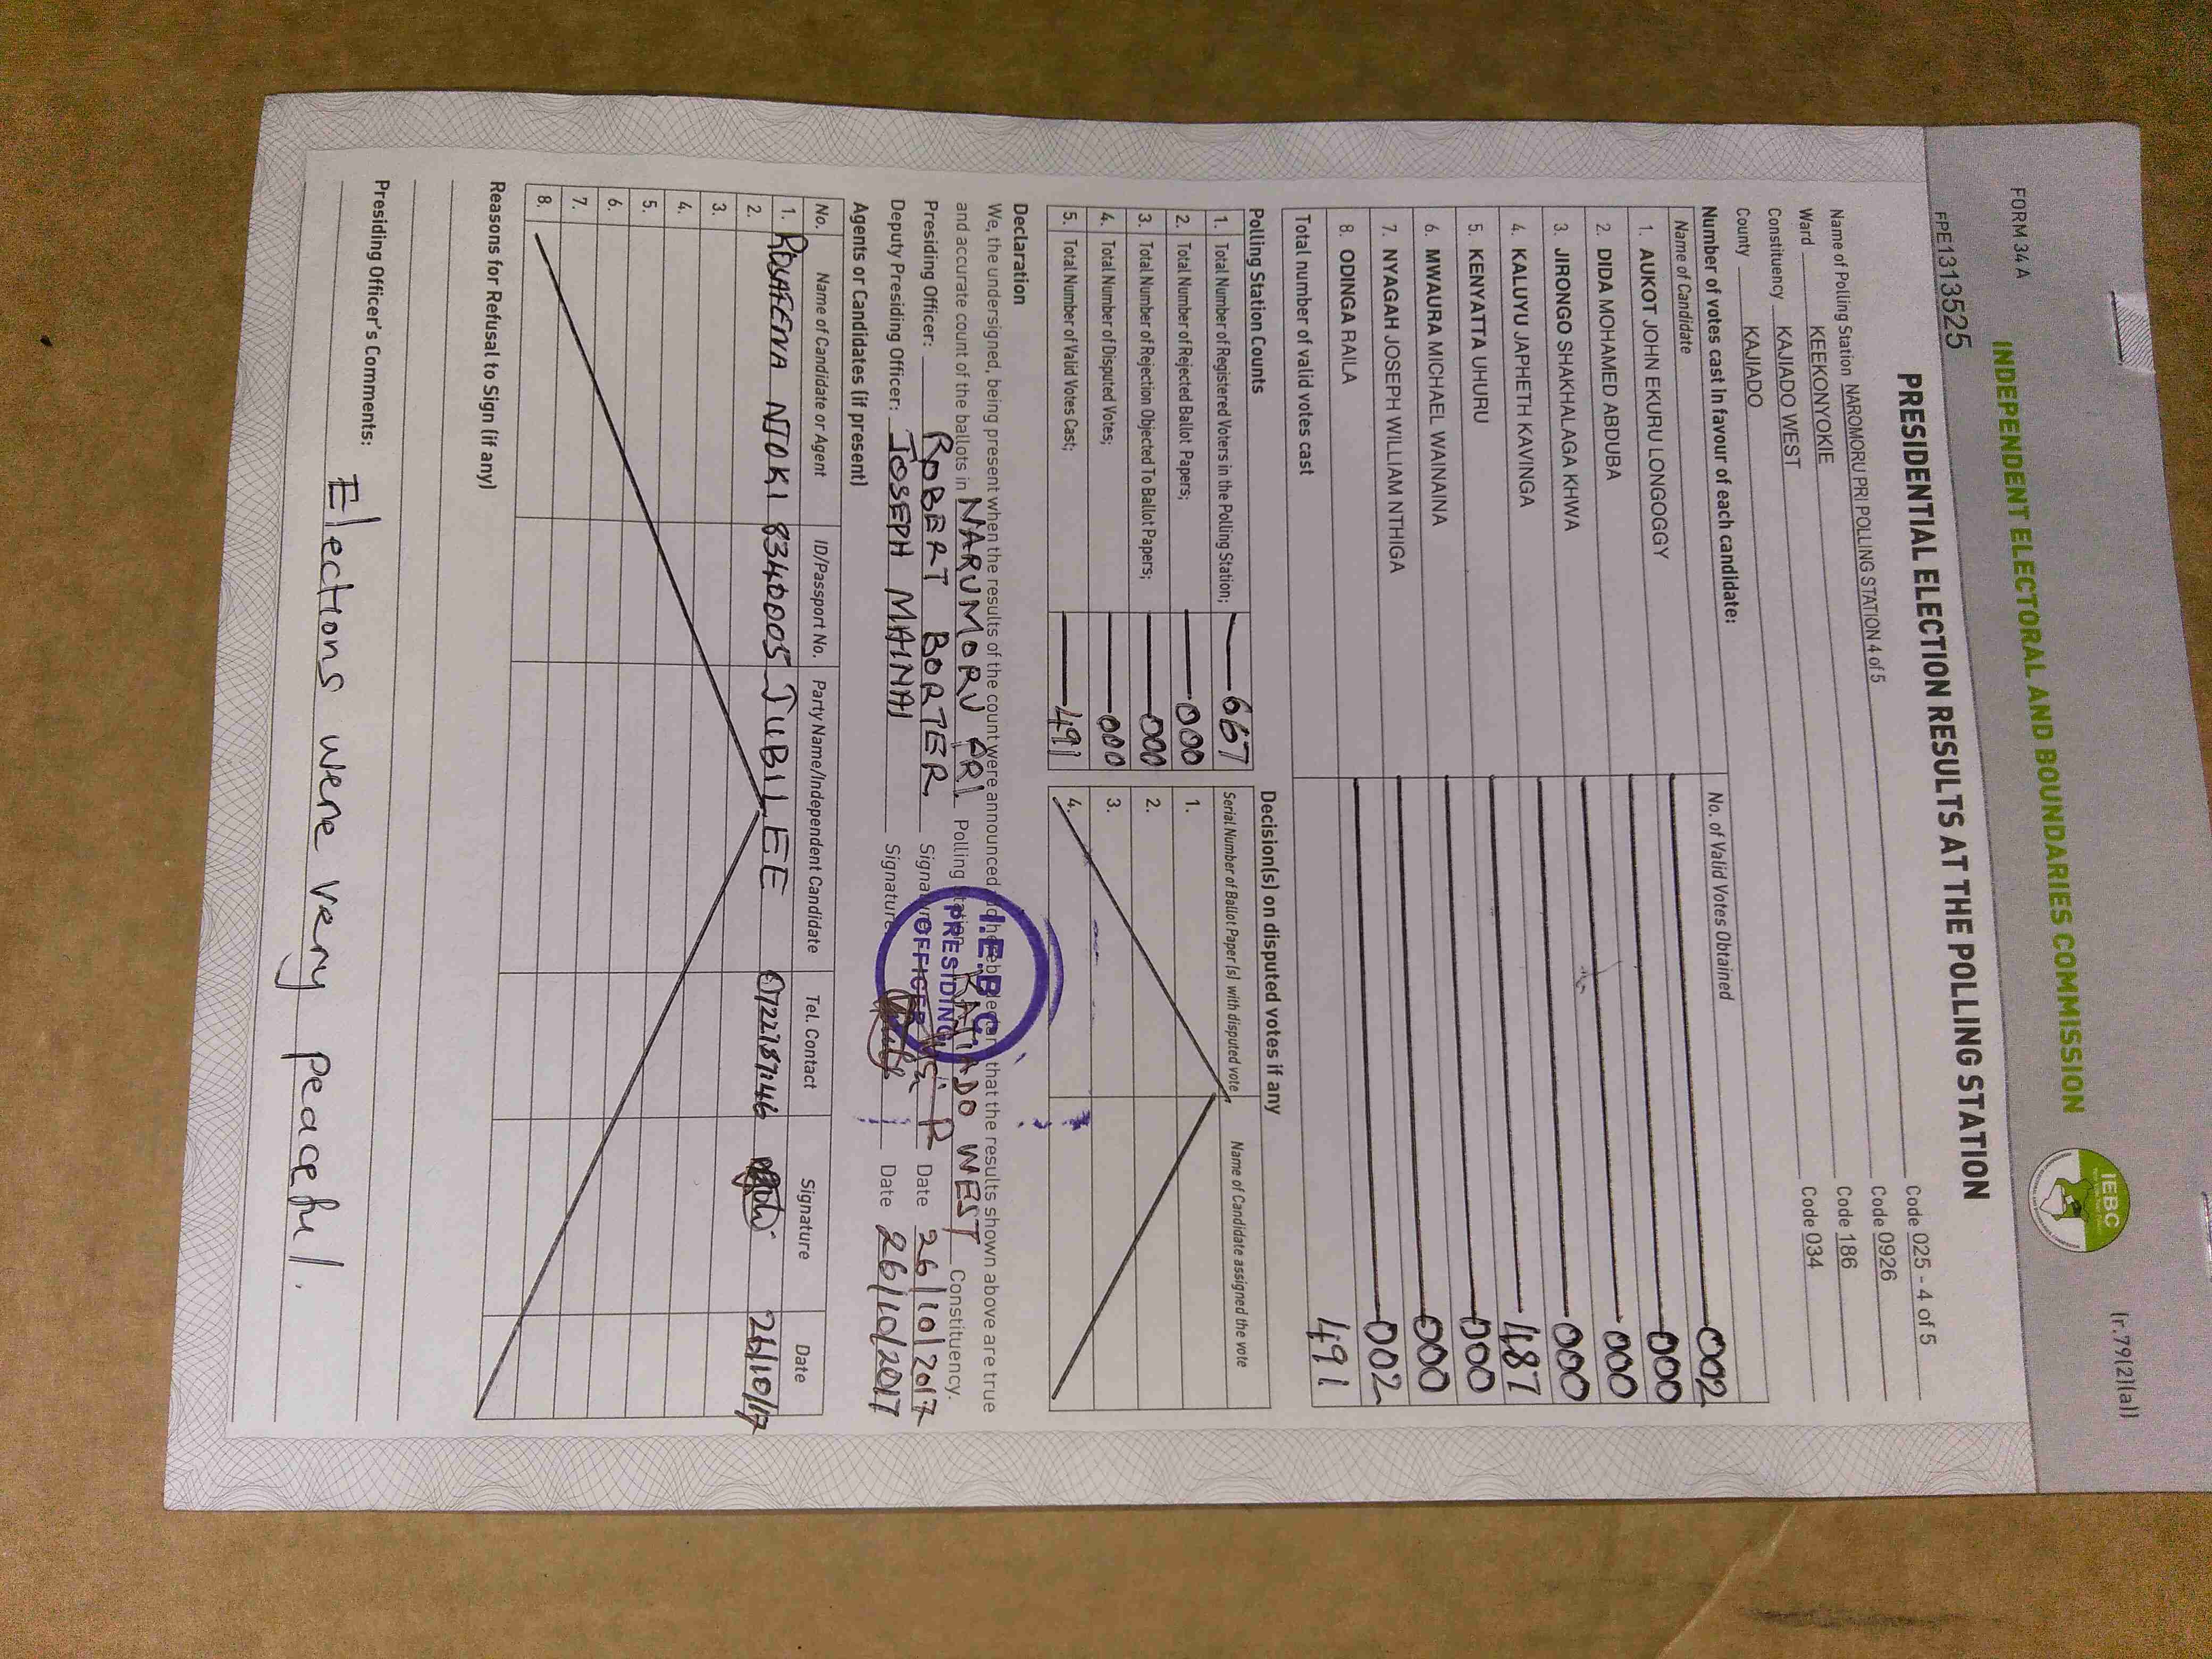 FORM 34 A
(r.79(2)(a))
INDEPENDENT ELECTORAL AND BOUNDARIES COMMISSION
IEBC
FPE1313525
PRESIDENTIAL ELECTION RESULTS AT THE POLLING STATION
Name of Polling Station NAROMORU PRI POLLING STATION 4 of 5 Code 025 - 4 of 5
Ward KEEKONYOKIE Code 0926
Constituency KAJIADO WEST Code 186
County KAJIADO Code 034
Number of votes cast In favour of each candidate:
Name of Candidate No. of Valid Votes Obtained
1. AUKOT JOHN EKURU LONGOGGY 002
2. DIDA MOHAMED ABDUBA 000
3. JIRONGO SHAKHALAGA KHWA 000
4. KALUYU JAPHETH KAVINGA 000
5. KENYATTA UHURU 487
6. MWAURA MICHAEL WAINAINA 000
7. NYAGAH JOSEPH WILLIAM NTHIGA 000
8. ODINGA RAILA 002
Total number of valid votes cast 491
Polling Station Counts
1. Total Number of Registered Voters in the Polling Station; 667
2. Total Number of Rejected Ballot Papers; 000
3. Total Number of Rejection Objected To Ballot Papers; 000
4. Total Number of Disputed Votes; 000
5. Total Number of Valid Votes Cast; 491
Decision(s) on disputed votes if any
Serial Number of Ballot Paper(s) with disputed vote Name of Candidate assigned the vote
1.
2.
3.
4.
Declaration
We, the undersigned, being present when the results of the count were announced that the results shown above are true
and accurate count of the ballots in NARUMORU PRI Polling Station KAJIADO WEST Constituency.
Presiding Officer: ROBERT BORTER Signature Date 26/10/2017
Deputy Presiding Officer: JOSEPH MAINAI Signature Date 26/10/2017
I.E.B.C
PRESIDING
OFFICER
Agents or Candidates (if present)
No. Name of Candidate or Agent ID/Passport No. Party Name/Independent Candidate Tel. Contact Signature Date
1. NJOKI 8340005 JUBILEE 26/10/17
2.
3.
4.
5.
6.
7.
8.
Reasons for Refusal to Sign (if any)
Presiding Officer's Comments:
Elections were very peaceful.